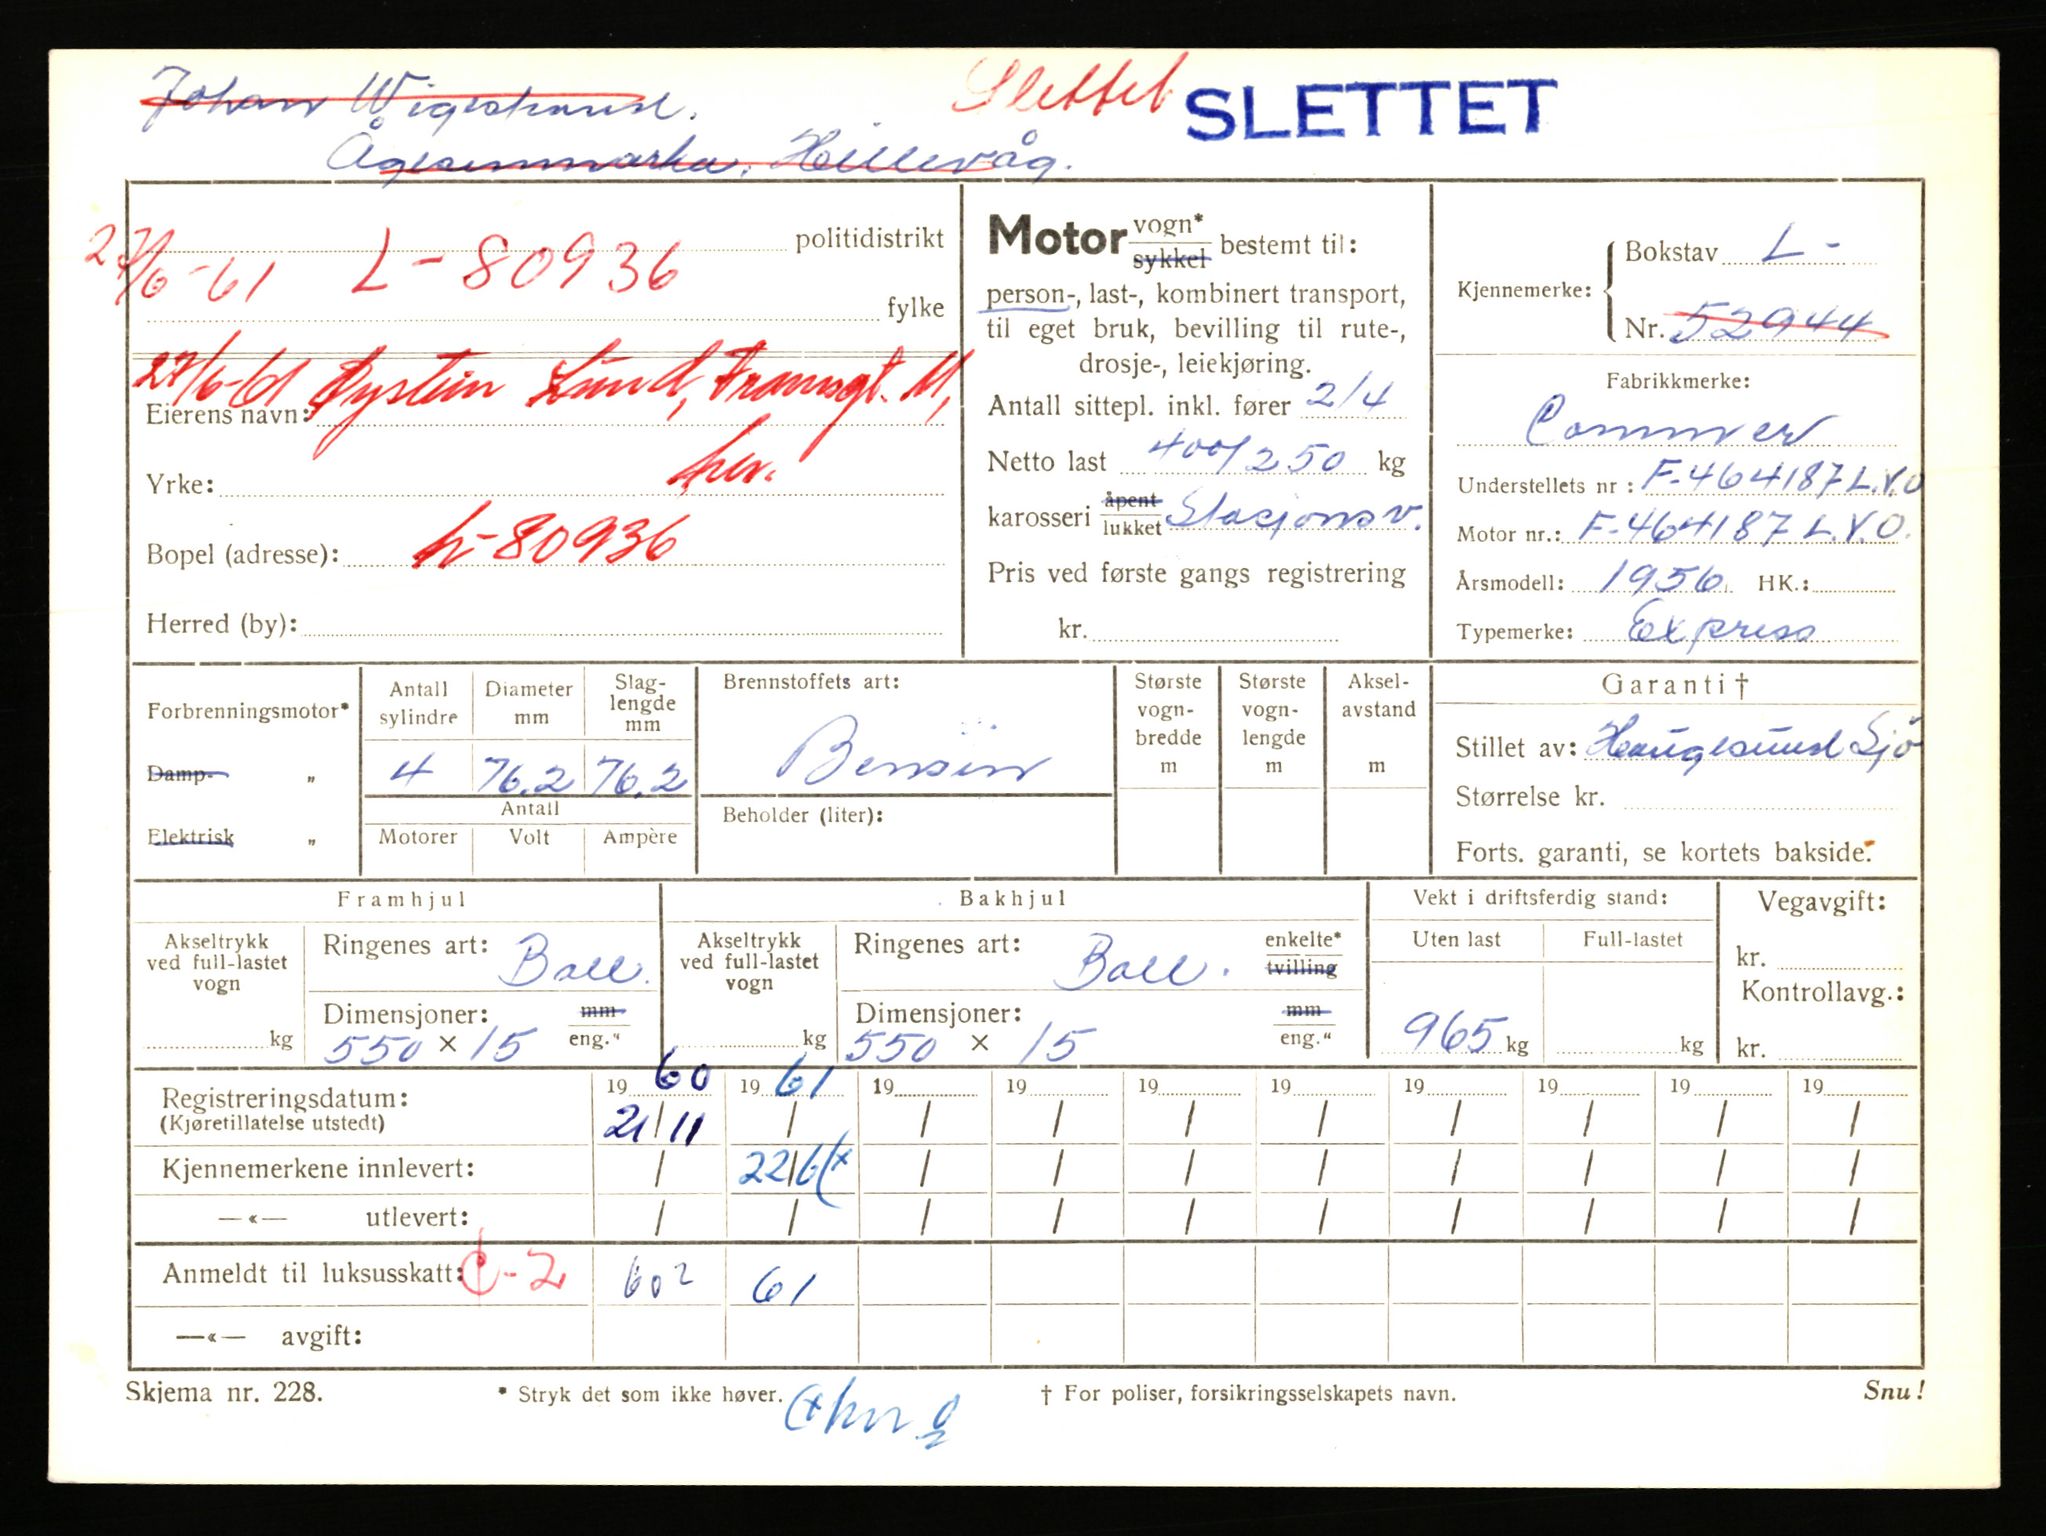 Johan Wigestrand.
Slettet SLETTET
Ågesenmarka, Hillevåg.
27/6-61 L-80936
politidistrikt
fylke
27/6-61 Øystein Lund, Framsgt. 11,
Eierens navn:
her.
Yrke:
L-80936
Bopel (adresse):
Herred (by):
Motor vogn* sykkel bestemt til:
person-, last-, kombinert transport,
til eget bruk, bevilling til rute-,
drosje-, leiekjøring.
Antall sittepl. inkl. fører 2/4
Netto last 400/250 kg
karosseri åpent lukket Stasjonsv.
Pris ved første gangs registrering
kr.
Kjennemerke: Bokstav L-
Nr. 52944
Fabrikkmerke:
Commer
Understellets nr: F-464187 L.V.O
Motor nr.: F-464187 L.V.O.
Årsmodell: 1956 HK.:
Typemerke: Express
Forbrenningsmotor*
Damp- „
Elektrisk „
Antall sylindre Diameter mm Slag-lengde mm
4 76.2 76.2
Antall
Motorer Volt Ampère
Brennstoffets art:
Bensin
Beholder (liter):
Største vogn-bredde m
Største vogn-lengde m
Aksel-avstand m
Garanti †
Stillet av: Haugesund Sjø
Størrelse kr.
Forts. garanti, se kortets bakside.
Framhjul
Akseltrykk ved full-lastet vogn
kg
Ringenes art: Ball.
Dimensjoner: mm
550 × 15 eng."
Bakhjul
Akseltrykk ved full-lastet vogn
kg
Ringenes art: Ball. enkelte* tvilling
Dimensjoner: mm
550 × 15 eng."
Vekt i driftsferdig stand:
Uten last Full-lastet
965 kg kg
Vegavgift:
kr.
Kontrollavg.:
kr.
Registreringsdatum: 1960 1961 19 19 19 19 19 19 19 19
(Kjøretillatelse utstedt) 21/11 / / / / / / / / /
Kjennemerkene innlevert: / 22/6 (x / / / / / / / /
—«— utlevert: / / / / / / / / / /
Anmeldt til luksusskatt: 60² 61
—«— avgift:
Skjema nr. 228. * Stryk det som ikke høver. † For poliser, forsikringsselskapets navn. Snu!